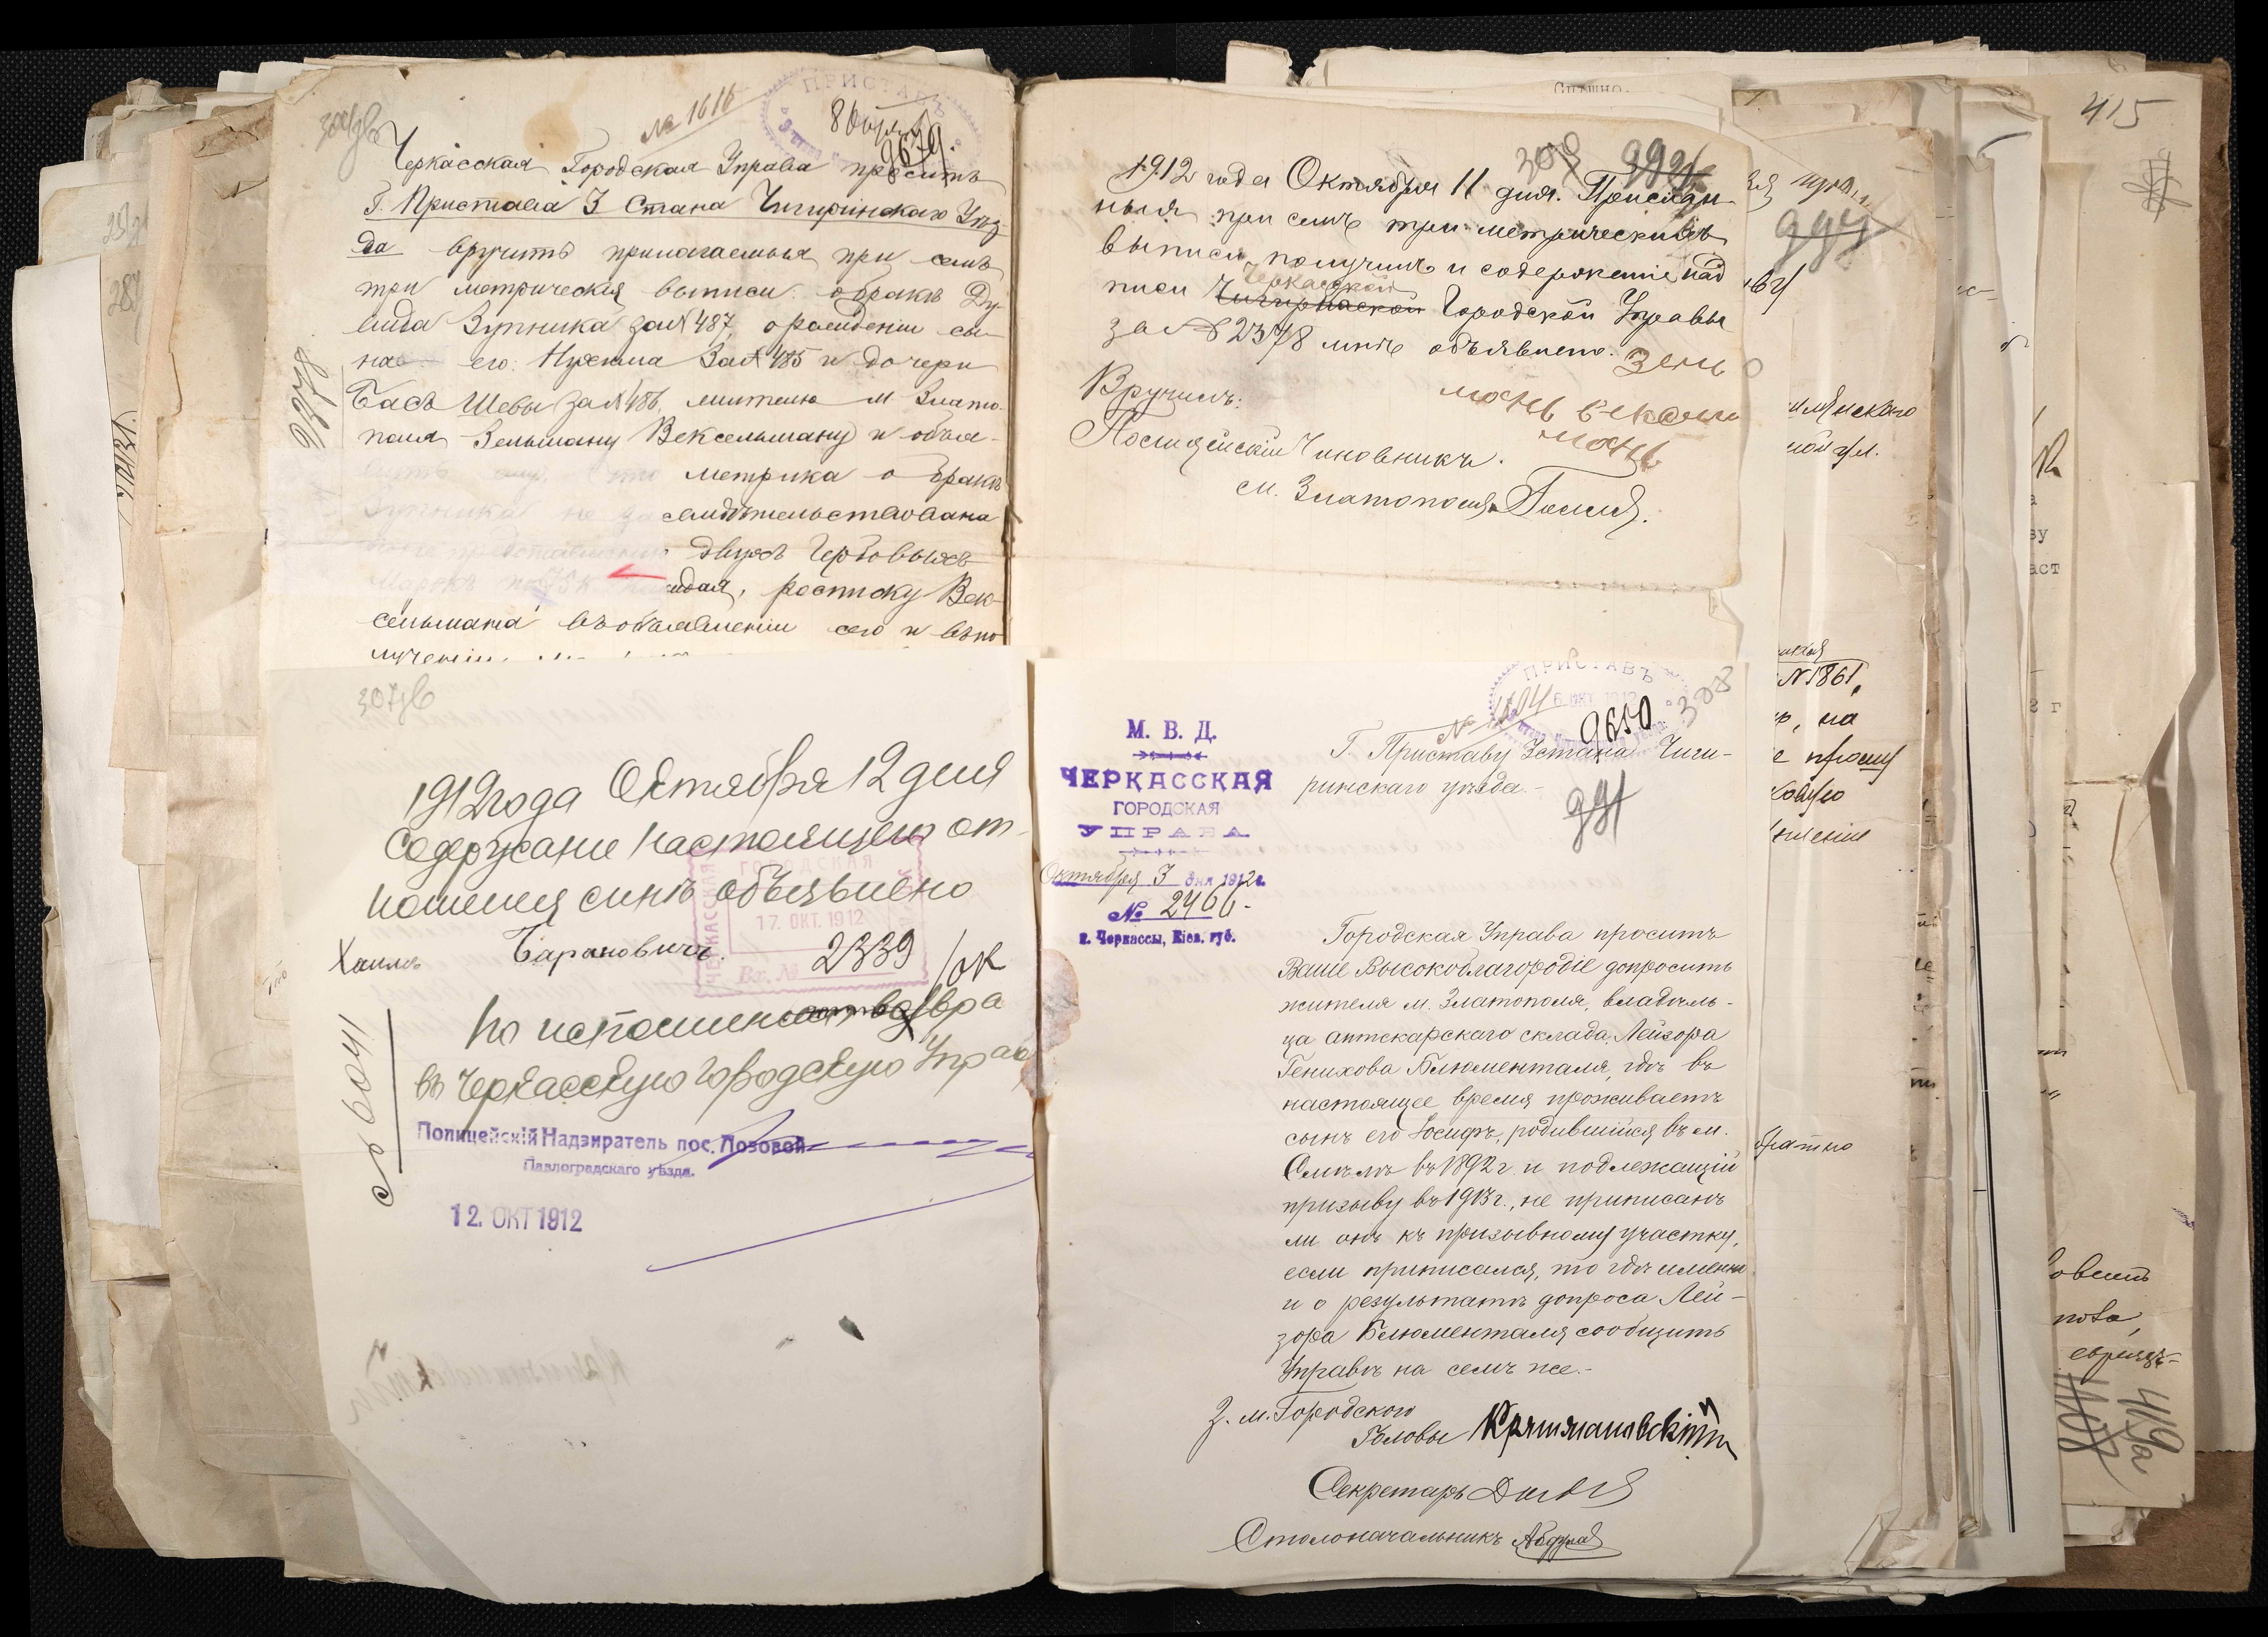 № 1616
ПРИСТАВЪ
9679.
Черкасская Городская Управа проситъ
Г. Пристава 3 Стана Чигиринскаго Уѣз-
да вручить прилагаемыя при семъ
три метрическія выписи: о бракѣ Ду-
вида Зупника за № 487, о рожденіи сы-
на его Нухима за № 485 и дочери
Бась Шевы за № 486, жителю м. Злато-
поля Зельману Вексельману и объя-
вить ему, что метрика о бракѣ
Зупника не засвидѣтельствована
двухъ Гербовыхъ
марокъ по 75 к каждая, росписку Век-
сельмана въ объявленіи сего и въ по-
лученіи
1912 года Октября 11 дня. Прислан-
ныя при семъ три метрическихъ
выписи получилъ и содержаніе над
Черкасской
писи Чигиринской Городской Управы
за № 2378 мнѣ объявлено. Зель
манъ Вексель
манъ
Вручилъ:
Полицейскій Чиновникъ
м. Златополя
307об
1912 года Октября 12 дня
Содержание настоящего от-
ношения симъ объявлено
Хаимъ Барановичъ.
ЧЕРКАССКАЯ
ГОРОДСКАЯ
17. ОКТ. 1912
Вх. №
2339
По исполнении возвра
въ Черкасскую Городскую Управ
№ 6041
Полицейскій Надзиратель пос. Лозовой
Павлоградскаго уѣзда.
12. ОКТ 1912
ПРИСТАВЪ
9650
308
М. В. Д.
ЧЕРКАССКАЯ
ГОРОДСКАЯ
УПРАВА
Октября 3 дня 1912 г.
№ 2466-
г. Черкассы, Кіев. губ.
Г. Приставу 3 стана Чиги-
ринскаго уѣзда.-
991
Городская Управа проситъ
Ваше Высокоблагородіе допросить
жителя м. Златополя, владѣль-
ца аптекарскаго склада, Лейзора
Генихова Блюменталя, гдѣ въ
настоящее время проживаетъ
сынъ его Іосифъ, родившійся въ м.
Смѣлѣ въ 1892 г. и подлежащій
призыву въ 1913 г., не приписанъ
ли онъ къ призывному участку,
если приписался, то гдѣ именно
и о результатѣ допроса Лей-
зора Блюменталя сообщить
Управѣ на семъ же.-
З. м. Городского
Головы
Секретарь
Столоначальникъ
№ 1861,
415
419а